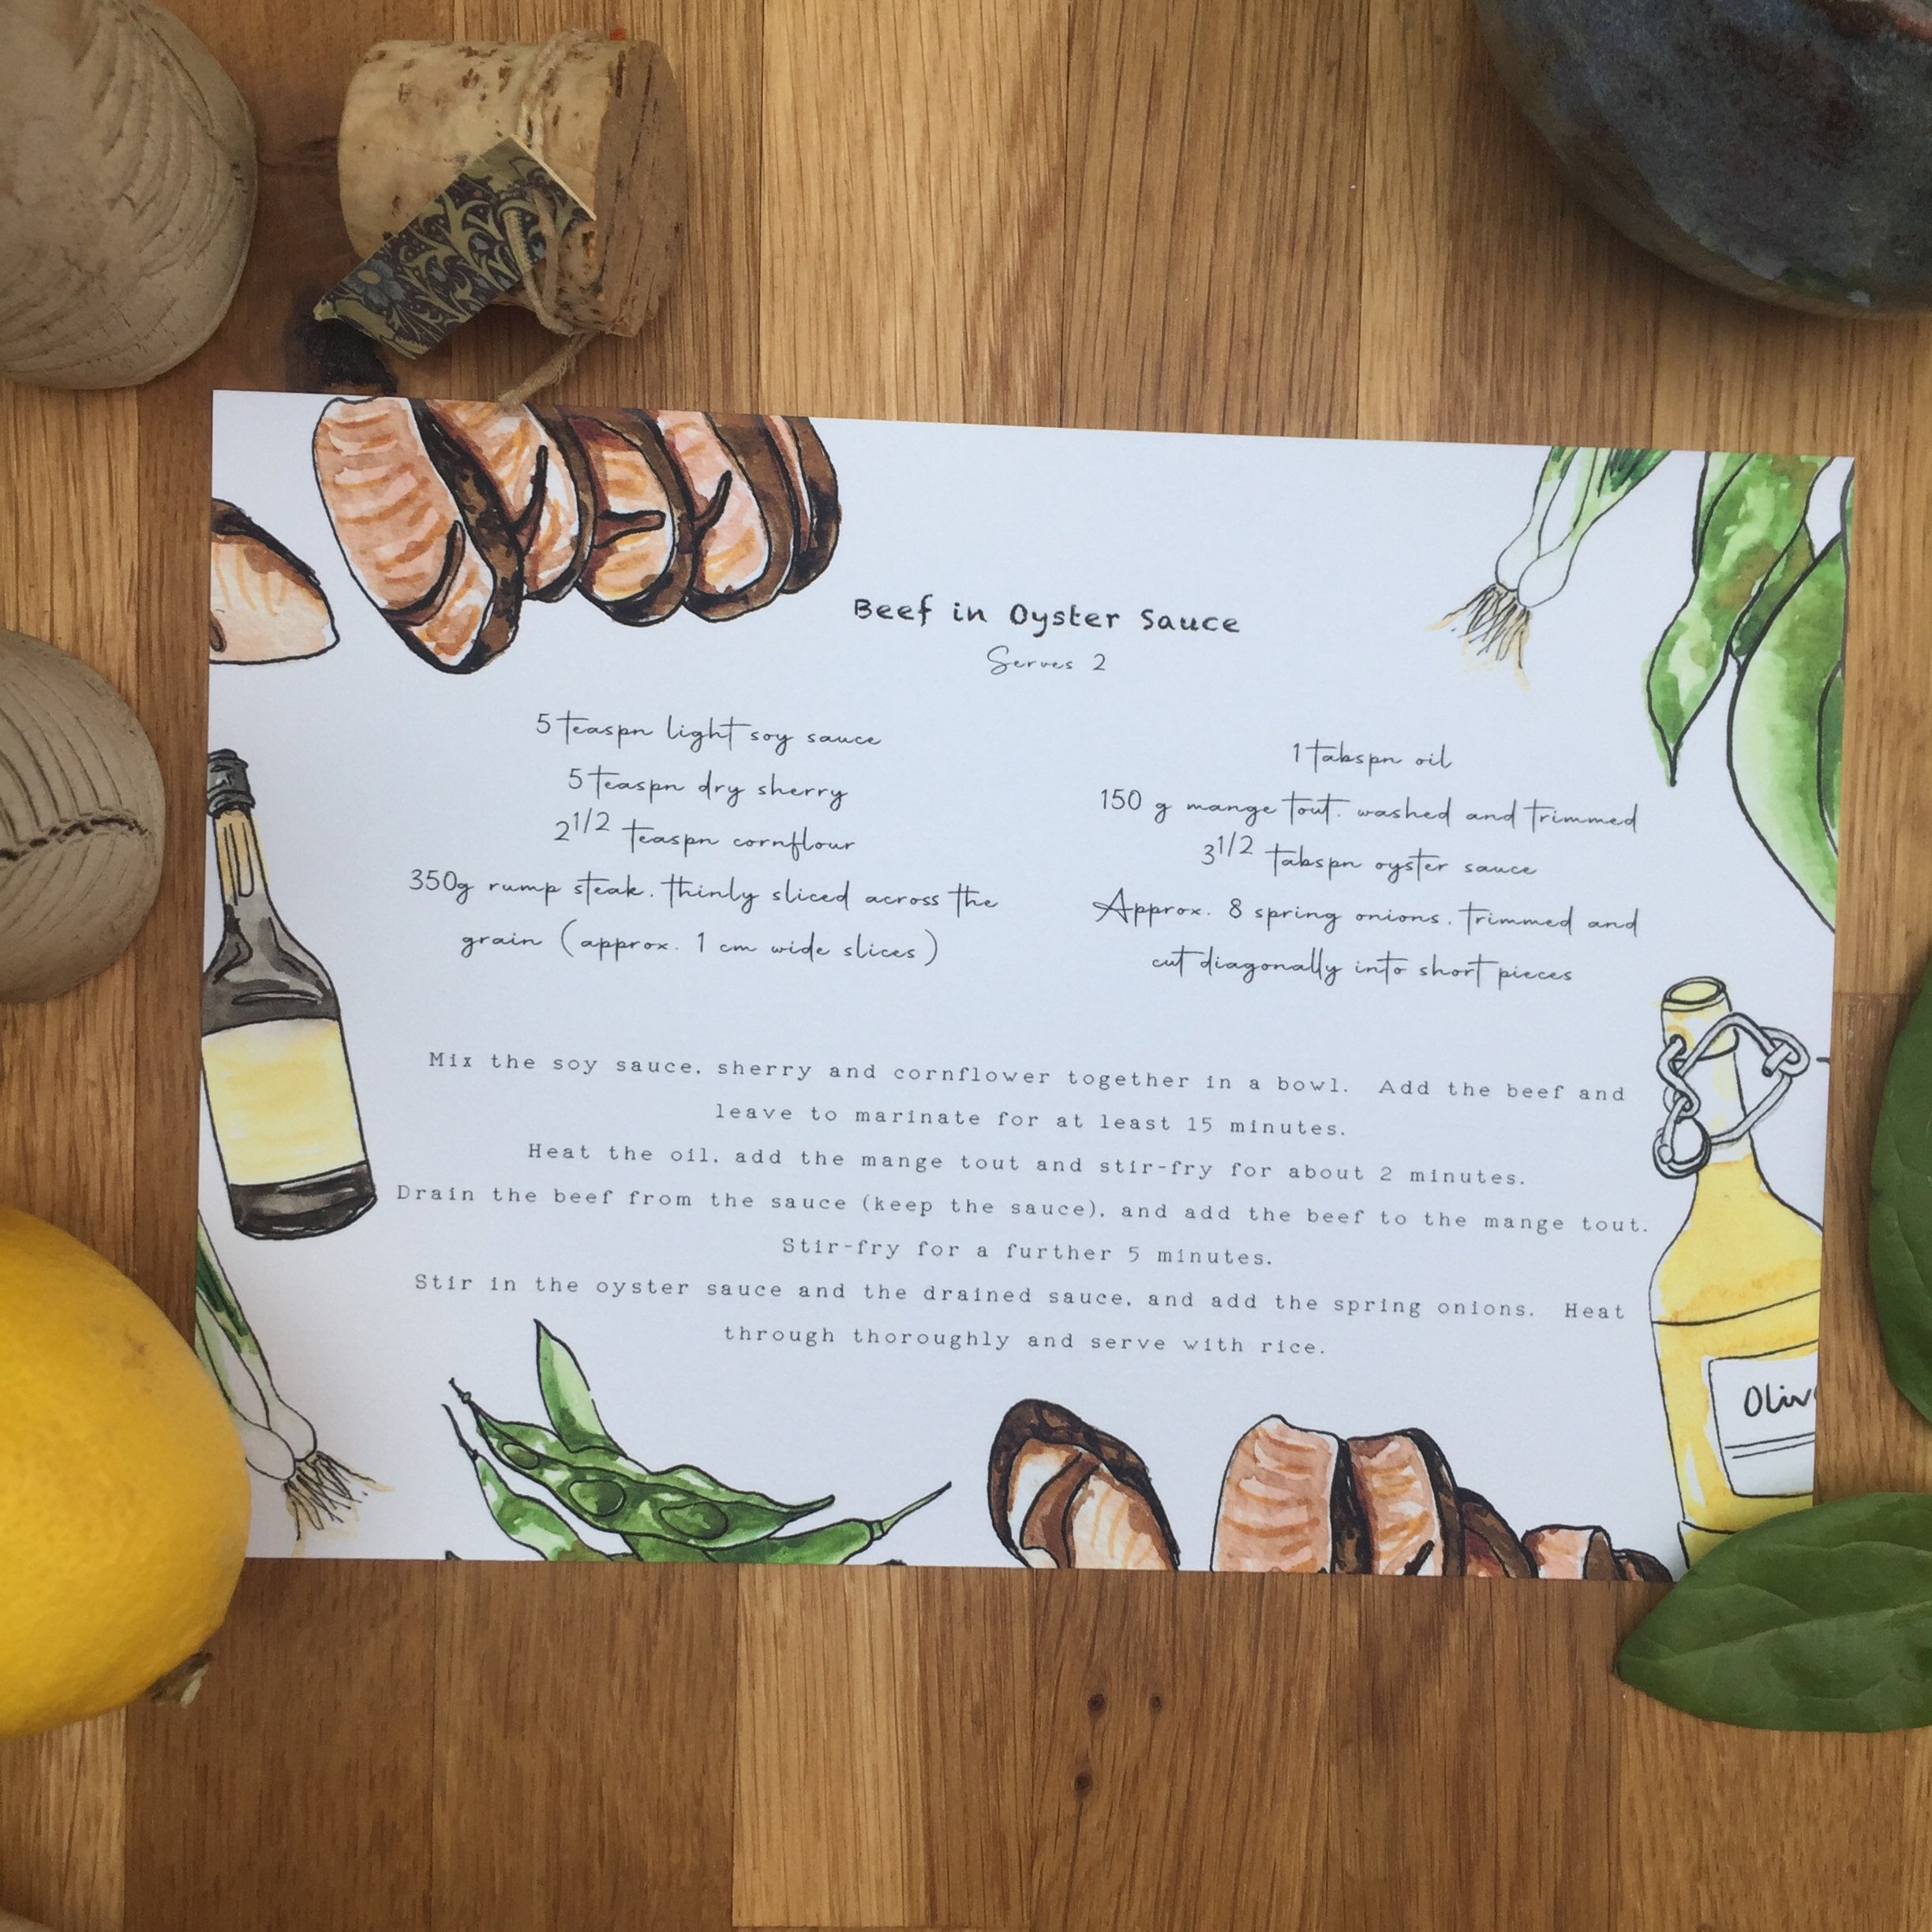 Beef in Oyster Sauce
Serves 2
5 teaspn light soy sauce
5 teaspn dry sherry
2 1/2 teaspn cornflour
350g rump steak, thinly sliced across the
grain (approx. 1 cm wide slices)
1 tabspn oil
150 g mange tout, washed and trimmed
3 1/2 tabspn oyster sauce
Approx. 8 spring onions, trimmed and
cut diagonally into short pieces
Mix the soy sauce, sherry and cornflower together in a bowl. Add the beef and
leave to marinate for at least 15 minutes.
Heat the oil, add the mange tout and stir-fry for about 2 minutes.
Drain the beef from the sauce (keep the sauce), and add the beef to the mange tout.
Stir-fry for a further 5 minutes.
Stir in the oyster sauce and the drained sauce, and add the spring onions. Heat
through thoroughly and serve with rice.
Oliv